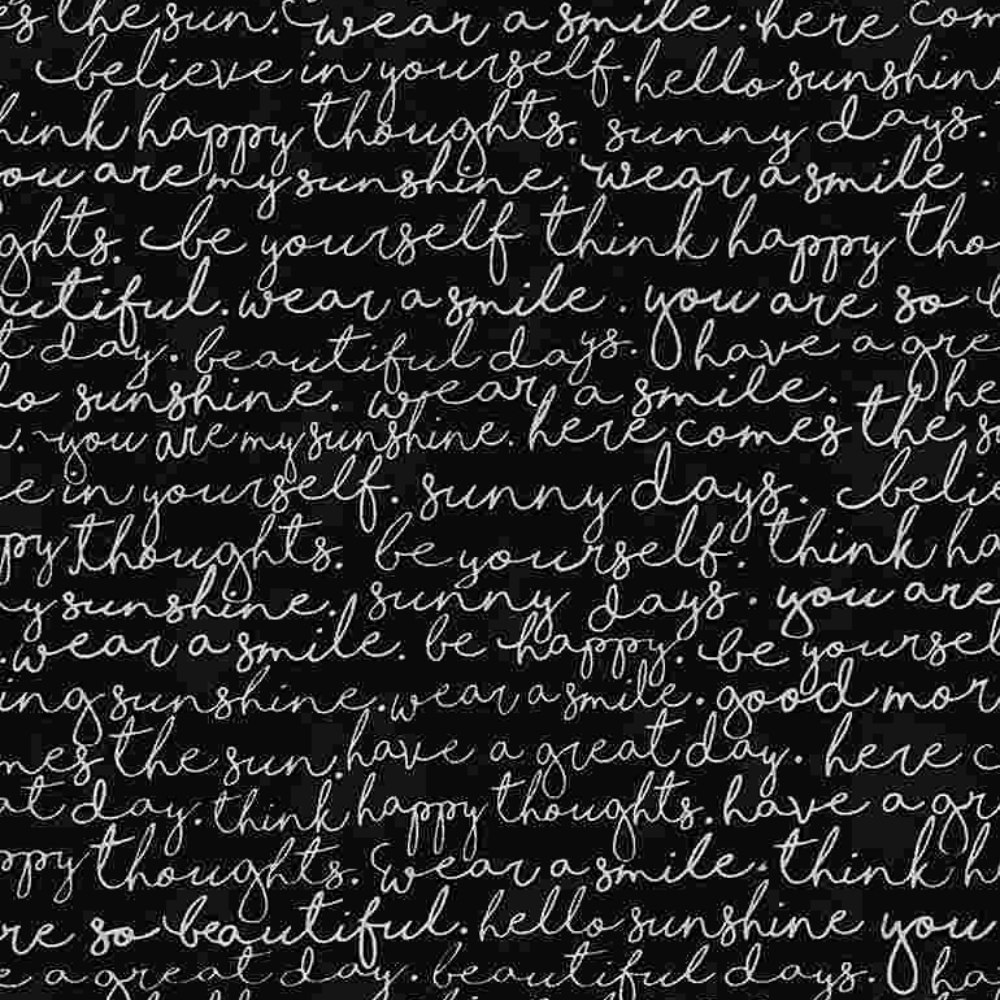 s the sun. wear a smile. here com
believe in yourself. hello sunshin
hink happy thoughts. sunny days.
ou are my sunshine. wear a smile.
ghts. be yourself think happy tho
utiful. wear a smile. you are so b
t day. beautiful days. have a gre
lo sunshine. wear a smile. he
you are my sunshine. here comes the su
e in yourself. sunny days. belie
py thoughts. be yourself. think ha
y sunshine. sunny days. you are
wear a smile. be happy. be yoursel
ing sunshine. wear a smile. good mor
mes the sun. have a great day. here c
at day. think happy thoughts. have a gr
ppy thoughts. wear a smile. think h
re so beautiful. hello sunshine you
e a great day. beautiful days. ha